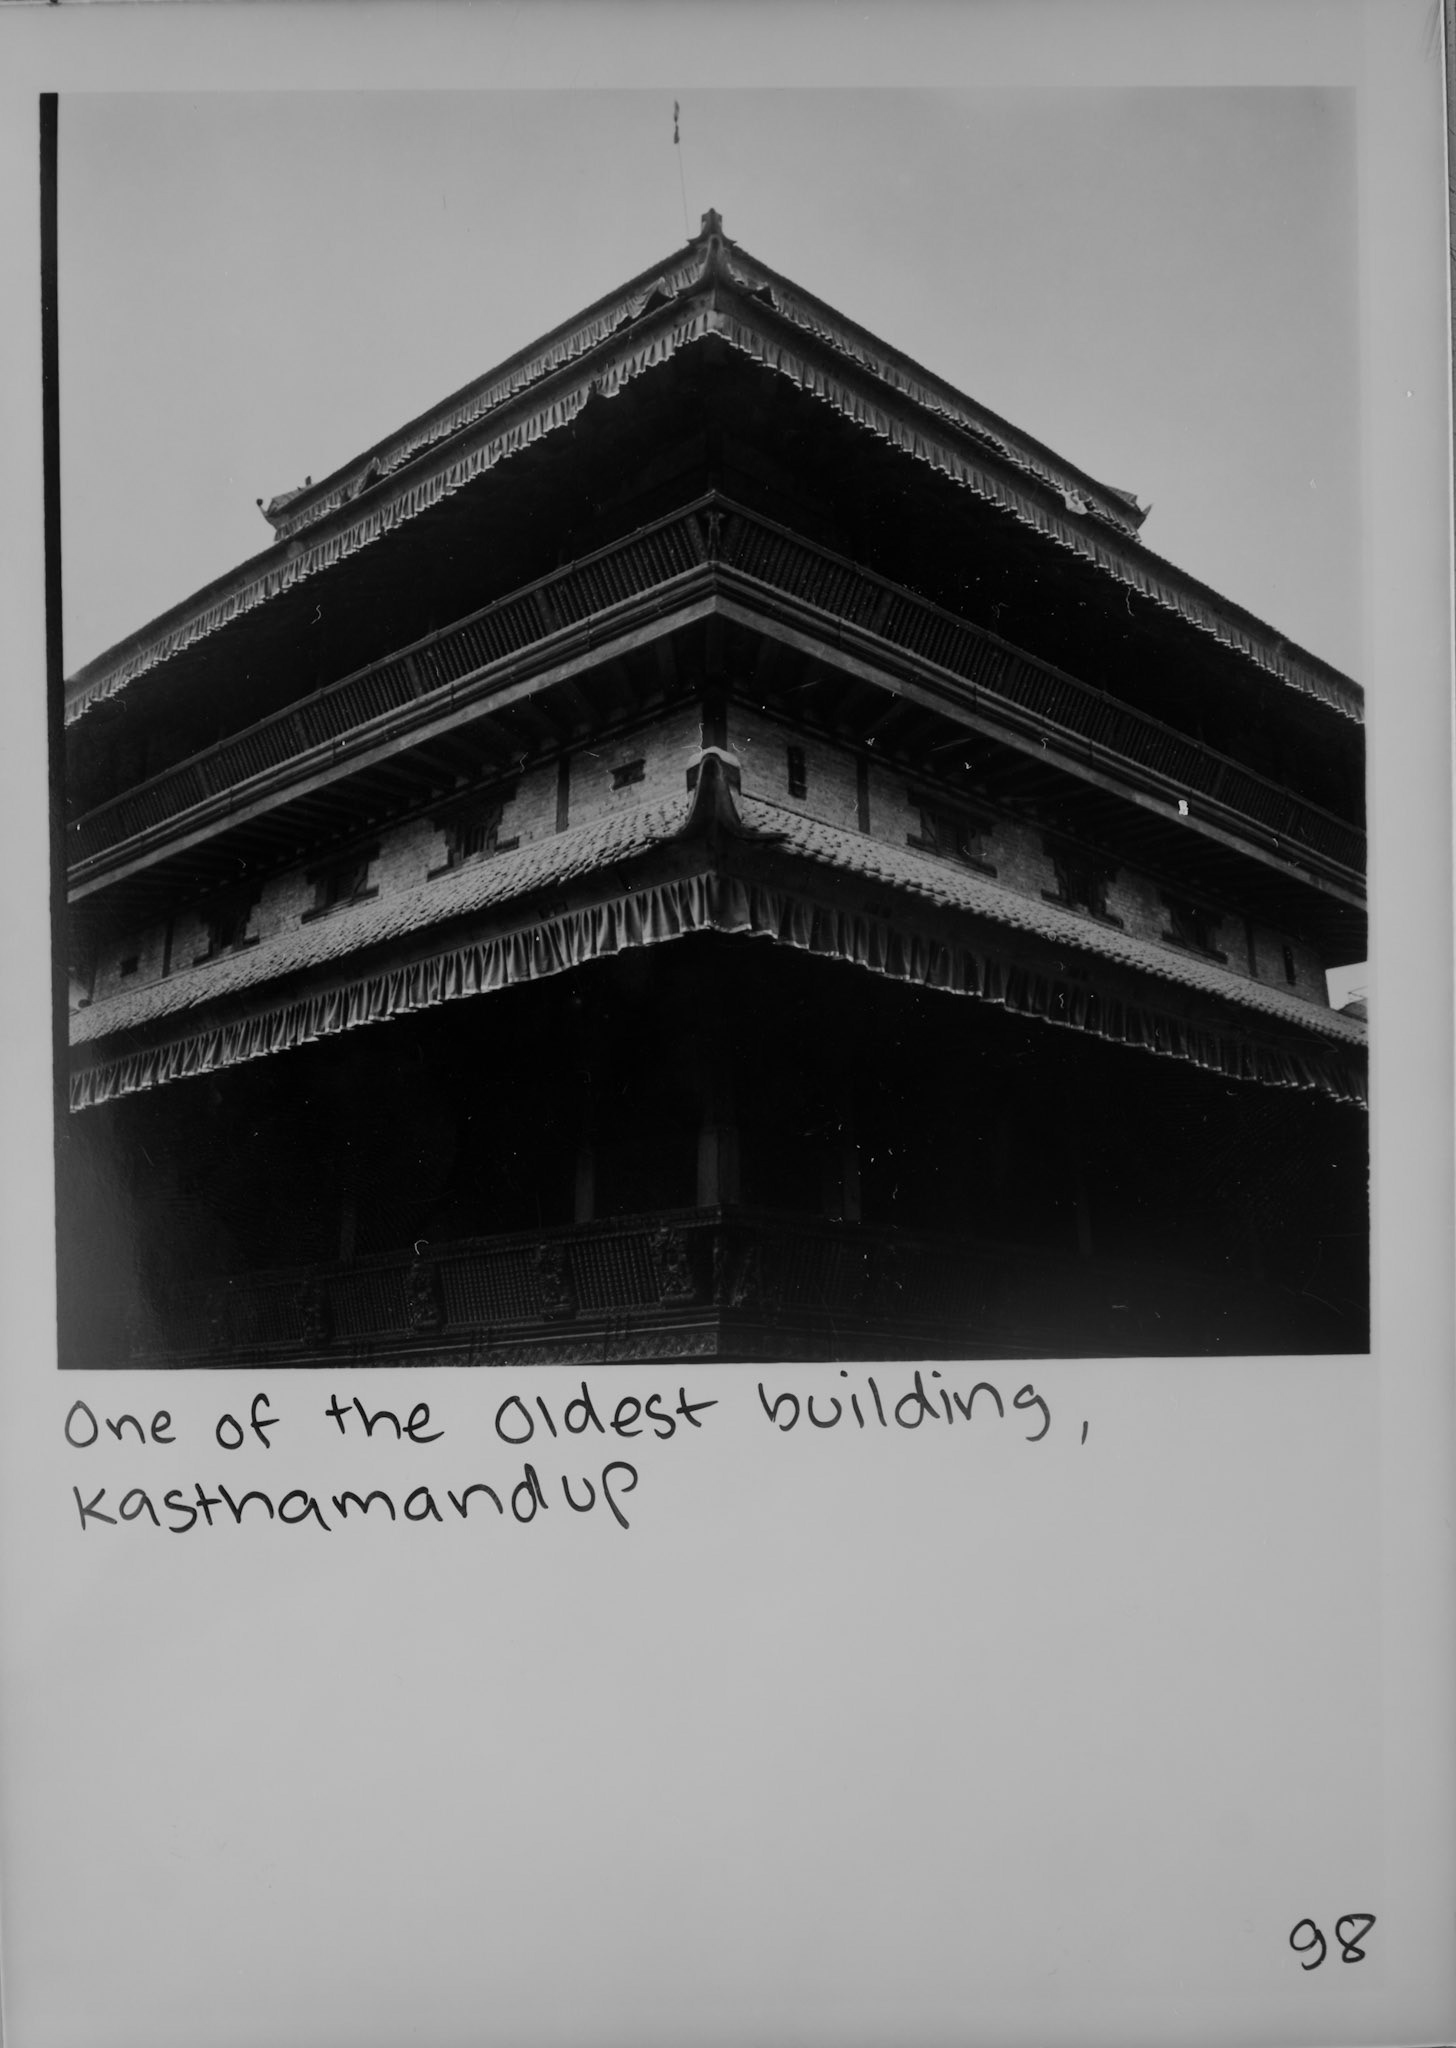 One of the oldest building,
Kasthamandup
98